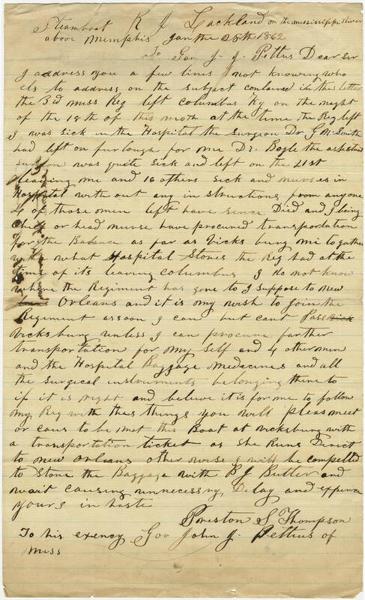 Steamboat R J Lackland on the mississippi River
above Memphis Jan the 25th 1862
To Gov J. J. Pettus Dear Sir
I address you a few lines not knowing who
els to address on the subject contained in this letter
the 3d miss Reg left Columbus Ky on the night
of the 18th of this moth at the time the Reg left
I was sick in the Hospital the Surgeon Dr J M Smith
had left on furlough for me Dr. Bogle the assistant
surgeon was quite sick and left on the 21st
leaving me and 18 others sick and nurses in
Hospital with out any in structions from anyone
4 of those men left have since Died and I being
Chief or head nurse have procured transportation
for the Balance as far as Vicks burg Mi to gather
with what Hospital Stores the Reg had at the
time of its leaving Columbus I do not know
where the Regiment has gone to I suppose to new
Orleans and it is my wish to join the
Regiment as soon I can but cant Pass
Vicksburg unless I can procure farther
transportation for my self and 4 other men
and the Hospital Baggage Medecines and all
the Surgical instruments belonging there to
if it is right and believe it is for me to follow
my Reg with thes things you will pleas meet
or caus to be met this Boat at vicksburg with
a transportation ticket as she Runs Direct
to new Orleans other wise I will be compelled
to Store the Baggage with P J Butler and
wait causing unnecessary Delay and expense
yours in haste
Preston S Thompson
To his exency Gov John J. Pettus of
Miss